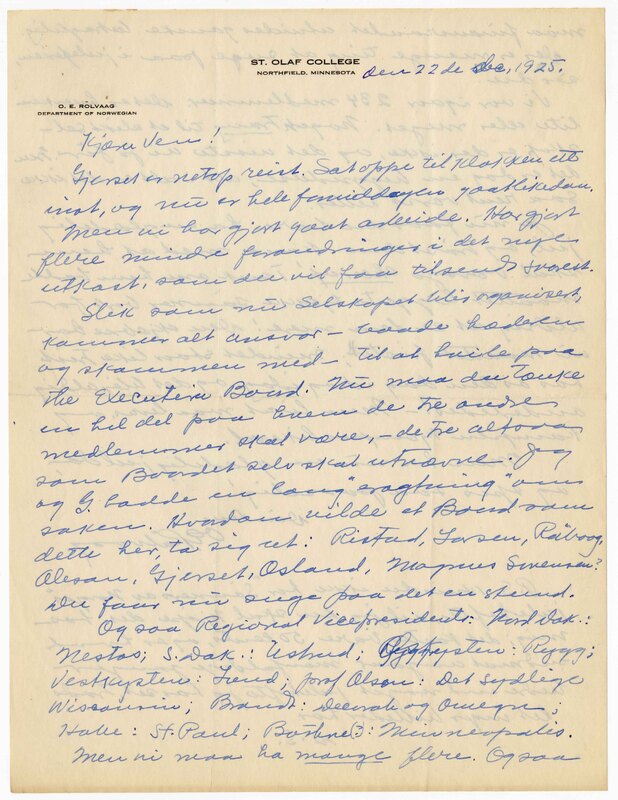 ST. OLAF COLLEGE
NORTHFIELD, MINNESOTA
den 22de dec, 1925.
O. E. ROLVAAG
DEPARTMENT OF NORWEGIAN
Kjære Ven!
Gjerset er netop reist. Sat oppe til klokken ett
inat, og nu er hele formiddagen gaat likedan.
Men vi har gjort godt arbeide. Har gjort
flere mindre forandringer i det nye
utkast, som du vil faa tilsendt snarest.
Slik som nu Selskapet blir organisert,
kommer alt ansvar — baade hæderen
og skammen med — til at hvile paa
the Executive Board. Nu maa du tænke
en hel del paa hvem de tre andre
medlemmer skal være, — de tre altsaa
som Boardet selv skal utnævne. Jeg
og G. hadde en lang "eragtning" om
saken. Hvordan vilde et Board som
dette her, ta sig ut: Ristad, Larsen, Rølvaag,
Oleson, Gjerset, Osland, Magnus Swenson?
Du faar nu suge paa det en stund.
Ogsaa Regional Vicepresidents: Nord Dak.:
Nestos; S. Dak.: Ustrud; Rygg;
Vestkysten: Trend; prof Olson: Det sydlege
Wisconsin; Brandt: Decorah og Omegn;
Hobe: St. Paul; Minneapolis.
Men vi maa ha mange flere. Ogsaa